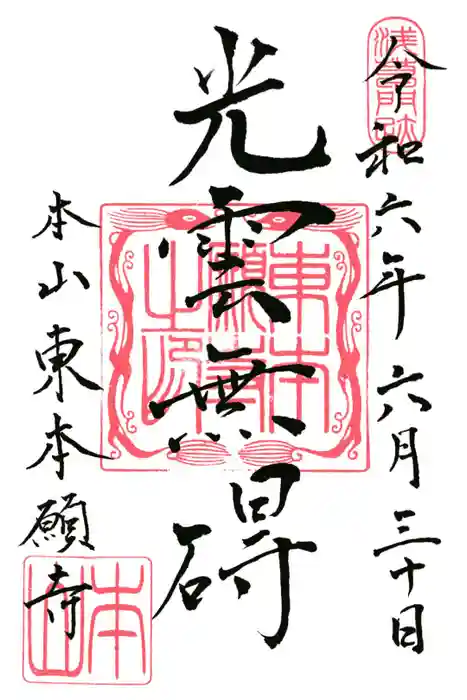 浅草門跡
令和六年六月三十日
光雲無碍
東本願寺之印
本山東本願寺
本山